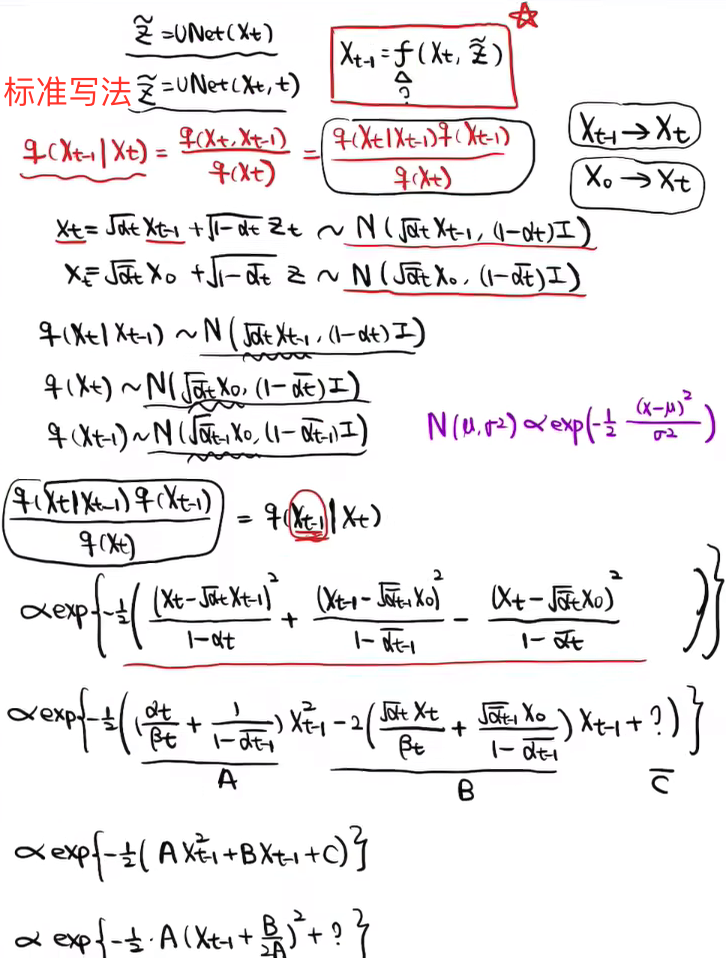 z̃ = UNet(Xt)
Xt-1 = f(Xt, z̃)
?
标准写法 z̃ = UNet(Xt, t)
q(Xt-1|Xt) = q(Xt, Xt-1)/q(Xt) = q(Xt|Xt-1)q(Xt-1)/q(Xt)
Xt-1 → Xt
X0 → Xt
Xt = √αt Xt-1 + √(1-αt) Zt ~ N(√αt Xt-1, (1-αt)I)
Xt = √ᾱt X0 + √(1-ᾱt) z ~ N(√ᾱt X0, (1-ᾱt)I)
q(Xt|Xt-1) ~ N(√αt Xt-1, (1-αt)I)
q(Xt) ~ N(√ᾱt X0, (1-ᾱt)I)
q(Xt-1) ~ N(√ᾱt-1 X0, (1-ᾱt-1)I)
N(μ,σ²) ∝ exp(-1/2 (x-μ)²/σ²)
q(Xt|Xt-1)q(Xt-1)/q(Xt) = q(Xt-1|Xt)
∝ exp{-1/2((Xt-√αt Xt-1)²/(1-αt) + (Xt-1-√ᾱt-1 X0)²/(1-ᾱt-1) - (Xt-√ᾱt X0)²/(1-ᾱt))}
∝ exp{-1/2((αt/βt + 1/(1-ᾱt-1))X²t-1 - 2(√αt Xt/βt + √ᾱt-1 X0/(1-ᾱt-1))Xt-1 + ?)}
A B C
∝ exp{-1/2(AX²t-1 + BXt-1 + C)}
∝ exp{-1/2·A(Xt-1 + B/2A)² + ?}